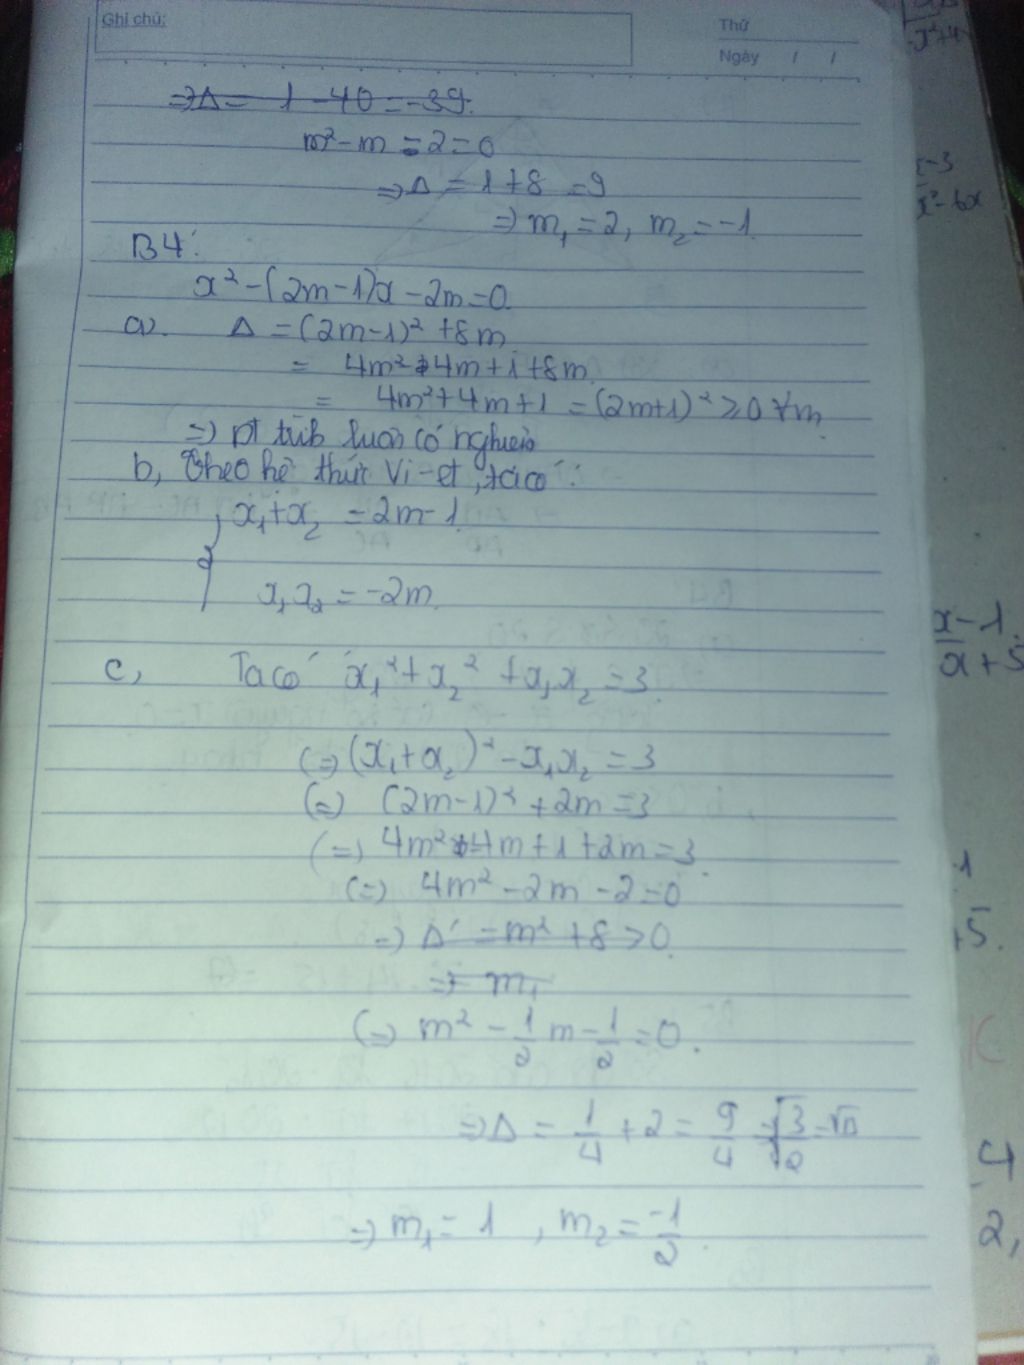 Ghi chú:
Thứ
Ngày / /
⇒ Δ = 1 - 40 = -39.
m² - m - 2 = 0
⇒ Δ = 1 + 8 = 9
⇒ m₁ = 2, m₂ = -1
B4:
x² - (2m-1)x - 2m = 0
a). Δ = (2m-1)² + 8m
= 4m² - 4m + 1 + 8m
= 4m² + 4m + 1 = (2m+1)² ≥ 0 ∀m
⇒ pt luôn có nghiệm
b, Theo hệ thức Vi-et, ta có:
{ x₁ + x₂ = 2m - 1
x₁x₂ = -2m
c, Ta có x₁² + x₂² + x₁x₂ = 3
(=) (x₁ + x₂)² - x₁x₂ = 3
(=) (2m-1)² + 2m = 3
(=) 4m² - 4m + 1 + 2m = 3
(=) 4m² - 2m - 2 = 0
=) Δ' = m² + 8 > 0
=) m₁
(=) m² - 1/2 m - 1/2 = 0.
⇒ Δ = 1/4 + 2 = 9/4
=) m₁ = 1, m₂ = -1/2
x-1
x+5